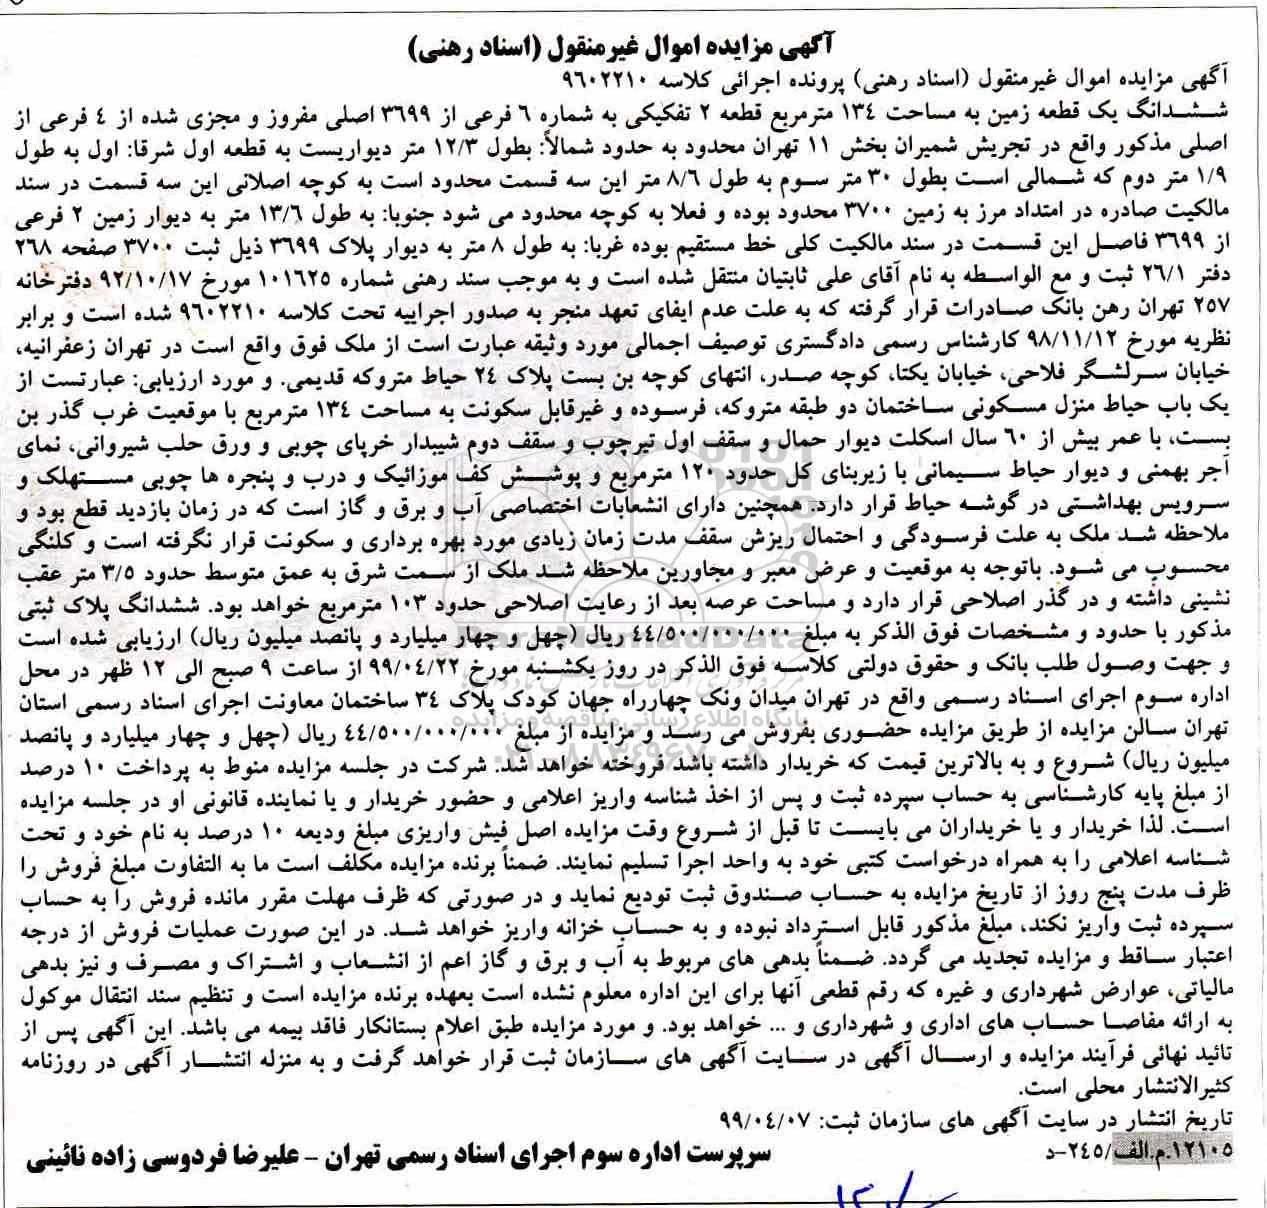 آگهی مزایده اموال غیرمنقول (اسناد رهنی)
آگهی مزایده اموال غیرمنقول (اسناد رهنی) پرونده اجرائی کلاسه ۹۶۰۲۲۱۰
ششدانگ یک قطعه زمین به مساحت ۱۳٤ مترمربع قطعه ۲ تفکیکی به شماره ٦ فرعی از ۳٦۹۹ اصلی مفروز و مجزی شده از ٤ فرعی از
اصلی مذکور واقع در تجریش شمیران بخش ۱۱ تهران محدود به حدود شمالاً: بطول ۱۲/۳ متر دیواریست به قطعه اول شرقا: اول به طول
۱/۹ متر دوم که شمالی است بطول ۳۰ متر سوم به طول ۸/٦ متر این سه قسمت محدود است به کوچه اصلاتی این سه قسمت در سند
مالکیت صادره در امتداد مرز به زمین ۳۷۰۰ محدود بوده و فعلا به کوچه محدود می شود جنوبا: به طول ۱۳/٦ متر به دیوار زمین ۲ فرعی
از ۳٦۹۹ فاصل این قسمت در سند مالکیت کلی خط مستقیم بوده غربا: به طول ۸ متر به دیوار پلاک ۳٦۹۹ ذیل ثبت ۳۷۰۰ صفحه ۲٦۸
دفتر ۲٦/۱ ثبت و مع الواسطه به نام آقای علی ثابتیان منتقل شده است و به موجب سند رهنی شماره ۱۰۱٦۲۵ مورخ ۹۲/۱۰/۱۷ دفترخانه
۲۵۷ تهران رهن بانک صادرات قرار گرفته که به علت عدم ایفای تعهد منجر به صدور اجراییه تحت کلاسه ۹٦۰۲۲۱۰ شده است و برابر
نظریه مورخ ۹۸/۱۱/۱۲ کارشناس رسمی دادگستری توصیف اجمالی مورد وثیقه عبارت است از ملک فوق واقع است در تهران زعفرانیه،
خیابان سرلشگر فلاحی، خیابان یکتا، کوچه صدر، انتهای کوچه بن بست پلاک ۲٤ حیاط متروکه قدیمی. و مورد ارزیابی: عبارتست از
یک باب حیاط منزل مسکونی ساختمان دو طبقه متروکه، فرسوده و غیرقابل سکونت به مساحت ۱۳٤ مترمربع با موقعیت غرب گذر بن
بست، با عمر بیش از ٦۰ سال اسکلت دیوار حمال و سقف اول تیرچوب و سقف دوم شیبدار خرپای چوبی و ورق حلب شیروانی، نمای
آجر بهمنی و دیوار حیاط سیمانی با زیربنای کل حدود ۱۲۰ مترمربع و پوشش کف موزائیک و درب و پنجره ها چوبی مستهلک و
سرویس بهداشتی در گوشه حیاط قرار دارد. همچنین دارای انشعابات اختصاصی آب و برق و گاز است که در زمان بازدید قطع بود و
ملاحظه شد ملک به علت فرسودگی و احتمال ریزش سقف مدت زمان زیادی مورد بهره برداری و سکونت قرار نگرفته است و کلنگی
محسوب می شود. باتوجه به موقعیت و عرض معبر و مجاورین ملاحظه شد ملک از سمت شرق به عمق متوسط حدود ۳/۵ متر عقب
نشینی داشته و در گذر اصلاحی قرار دارد و مساحت عرصه بعد از رعایت اصلاحی حدود ۱۰۳ مترمربع خواهد بود. ششدانگ پلاک ثبتی
مذکور با حدود و مشخصات فوق الذکر به مبلغ ٤٤/۵۰۰/۰۰۰/۰۰۰ ریال (چهل و چهار میلیارد و پانصد میلیون ریال) ارزیابی شده است
و جهت وصول طلب بانک و حقوق دولتی کلاسه فوق الذکر در روز یکشنبه مورخ ۹۹/۰٤/۲۲ از ساعت ۹ صبح الی ۱۲ ظهر در محل
اداره سوم اجرای اسناد رسمی واقع در تهران میدان ونک چهارراه جهان کودک پلاک ۳٤ ساختمان معاونت اجرای اسناد رسمی استان
تهران سالن مزایده از طریق مزایده حضوری بفروش می رسد و مزایده از مبلغ ٤٤/۵۰۰/۰۰۰/۰۰۰ ریال (چهل و چهار میلیارد و پانصد
میلیون ریال) شروع و به بالاترین قیمت که خریدار داشته باشد فروخته خواهد شد. شرکت در جلسه مزایده منوط به پرداخت ۱۰ درصد
از مبلغ پایه کارشناسی به حساب سپرده ثبت و پس از اخذ شناسه واریز اعلامی و حضور خریدار و یا نماینده قانونی او در جلسه مزایده
است. لذا خریدار و یا خریداران می بایست تا قبل از شروع وقت مزایده اصل فیش واریزی مبلغ ودیعه ۱۰ درصد به نام خود و تحت
شناسه اعلامی را به همراه درخواست کتبی خود به واحد اجرا تسلیم نمایند. ضمناً برنده مزایده مکلف است ما به التفاوت مبلغ فروش را
ظرف مدت پنج روز از تاریخ مزایده به حساب صندوق ثبت تودیع نماید و در صورتی که ظرف مهلت مقرر مانده فروش را به حساب
سپرده ثبت واریز نکند، مبلغ مذکور قابل استرداد نبوده و به حساب خزانه واریز خواهد شد. در این صورت عملیات فروش از درجه
اعتبار ساقط و مزایده تجدید می گردد. ضمناً بدهی های مربوط به آب و برق و گاز اعم از انشعاب و اشتراک و مصرف و نیز بدهی
مالیاتی، عوارض شهرداری و غیره که رقم قطعی آنها برای این اداره معلوم نشده است بعهده برنده مزایده است و تنظیم سند انتقال موکول
به ارائه مفاصا حساب های اداری و شهرداری و ... خواهد بود. و مورد مزایده طبق اعلام بستانکار فاقد بیمه می باشد. این آگهی پس از
تائید نهائی فرآیند مزایده و ارسال آگهی در سایت آگهی های سازمان ثبت قرار خواهد گرفت و به منزله انتشار آگهی در روزنامه
کثیرالانتشار محلی است.
تاریخ انتشار در سایت آگهی های سازمان ثبت: ۹۹/۰٤/۰۷
۱۲۱۰۵.م.الف/۲٤۵-د
سرپرست اداره سوم اجرای اسناد رسمی تهران - علیرضا فردوسی زاده نائینی
ParsNamadData
پایگاه اطلاع رسانی مناقصه و مزایده